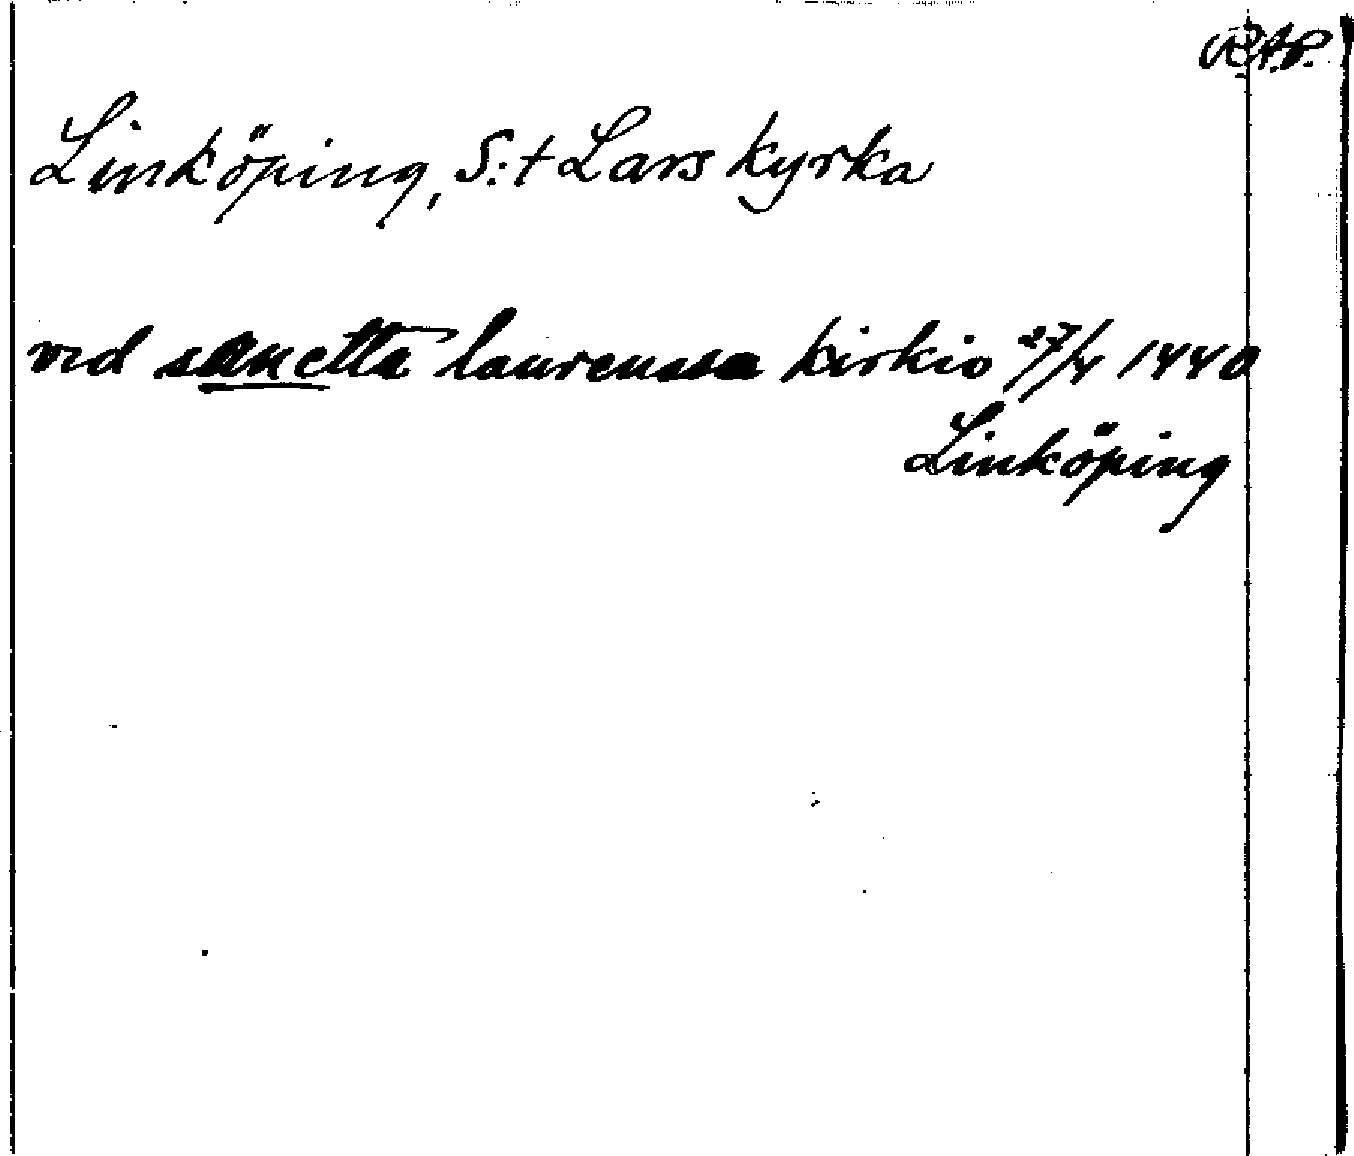 R.A.P.
Linköping, S:t Lars kyrka
vid sanctta laurenssa kirkio 27/4 1440
Linköping